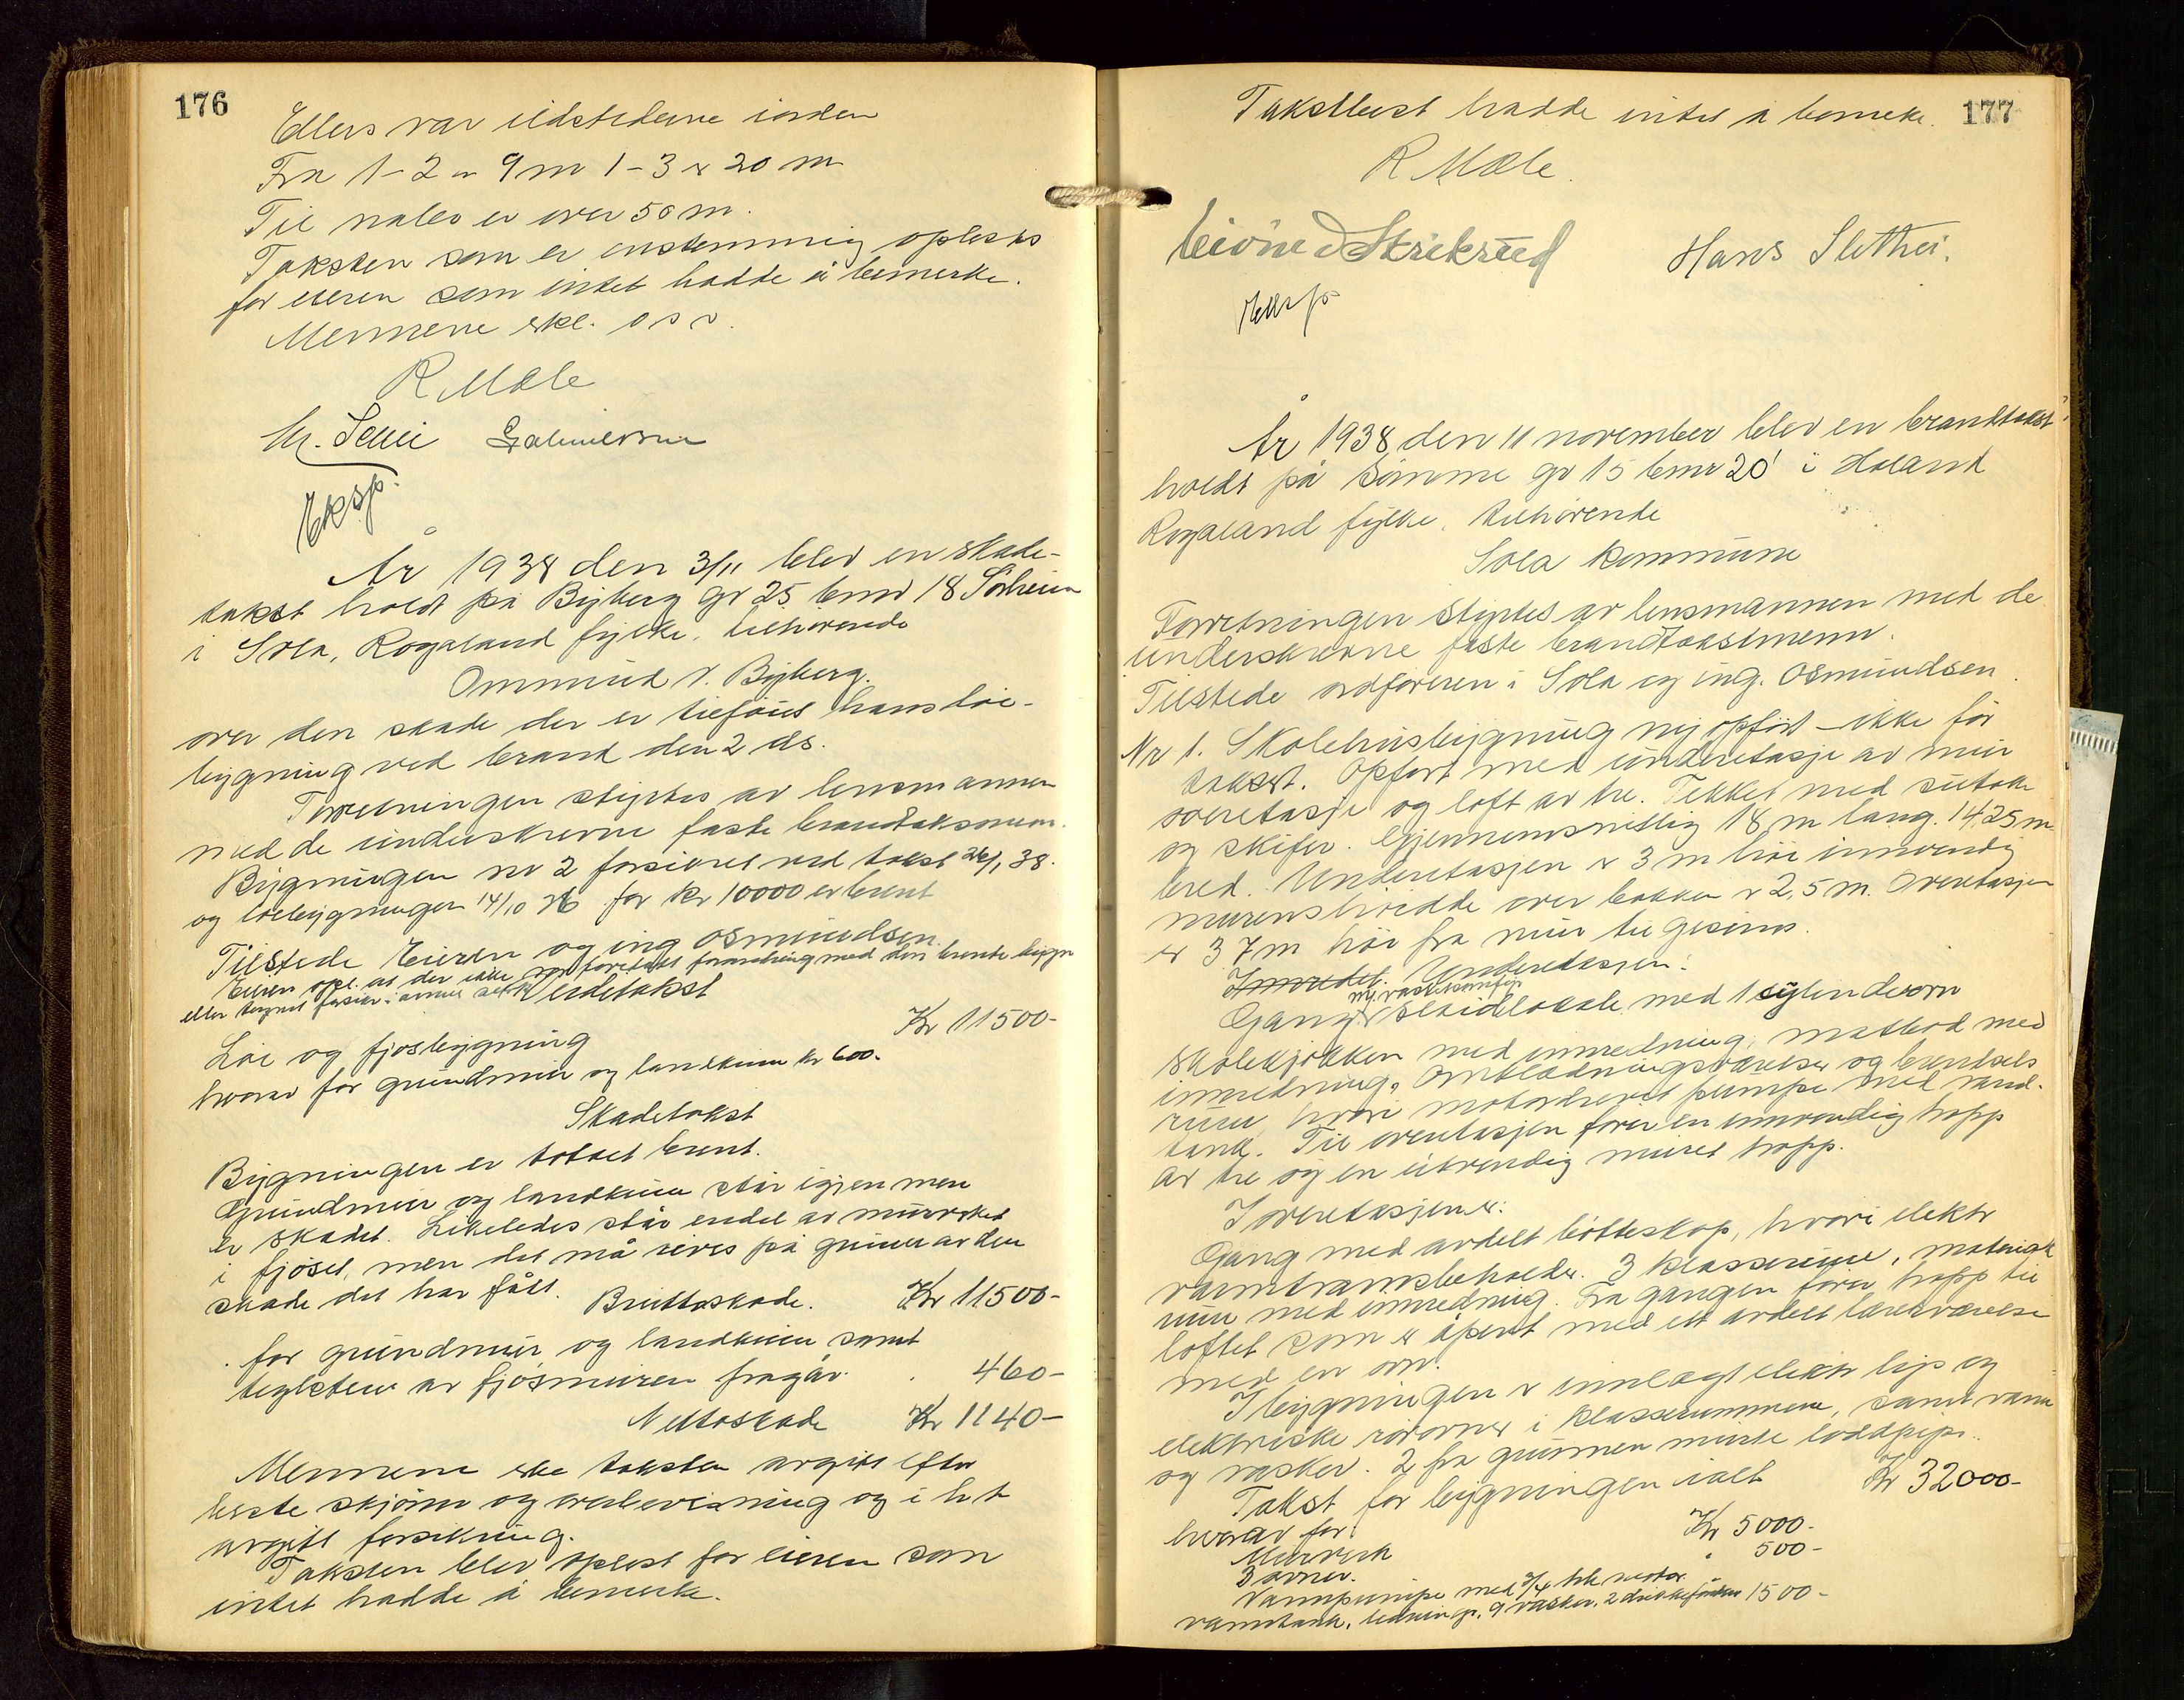 176
Ellers var ildstederne iorden
Fra 1-2 er 9 m 1-3 er 20 m
Til nabo er over 50 m.
Taksten som er enstemmig oplestes
for eieren som intet hadde å bemerke.
Mennene erkl. o s v.
R Mæle
Eksp.
År 1938 den 3/11 blev en skade-
takst holdt på Byberg gr 25 bnr 18 Solheim
i Sola, Rogaland fylke, tilhørende
Ommund V. Byberg.
over den skade der er tilføiet hans løe-
bygning ved brand den 2 ds.
Forretningen styrtes av lensmannen
med de underskrevne faste brandtaksmenn.
Bygningen nr 2 forsikret ved takst 26/1 38.
og løebygningen 14/10 26 for kr 10000 er brent
Tilstede Eieren og ing Osmundsen.
Eieren opl. at der ikke var foretatt forandring med den brente bygn
eller tegnet forsikr. i annet selsk Verditakst
Løe og fjøsbygning Kr 11500-
hvorav for grundmur og landkum kr 600.
Skadetakst
Bygningen er totalt brent.
Grundmur og landkum står igjen men
er skadet. Likeledes står endel av murverket
i fjøset, men det må rives på grunn av den
skade det har fått. Bruttoskade. Kr 11500-
for grundmur og landkum samt
teglsten av fjøsmuren fragår. 460-
Nettoskade Kr 1140-
Mennene erkl taksten avgitt efter
beste skjønn og overbevisning og i h t
avgitt forsikring.
Taksten blev oplest for eieren som
intet hadde å bemerke.
177
Takstlæst hadde intet å bemerke.
R Mæle.
Hans Slethei.
Eksp
År 1938 den 11 november blev en brandtakst
holdt på Sømme gr 15 bnr 20 i Håland
Rogaland fylke, tilhørende
Sola kommune
Forretningen styrtes av lensmannen med de
underskrevne faste brandtakstmenn.
Tilstede ordføreren i Sola og ing. Osmundsen.
Nr 1. Skolehusbygning ny opført - ikke før
takst. Opført med underetasje av mur
overetasje og loft av tre. Tekket med sutak
og skifer. Gjennemsnitlig 18 m lang. 14,25 m
bred. Underetasjen er 3 m høi innvendig
murens høide over bakken er 2,5 m. Overetasjen
er 3 7 m høi fra mur til gesims.
Innredet. Underetasjen:
Gang, sløidlokale med 1 sylinderovn
skolekjøkken med innredning, matbod med
innredning, omklædningsværelse og brensels
rum, hvori motordrevet pumpe med vand-
tank. Til overetasjen fører en innvendig trapp
av tre og en utvendig muret trapp.
I overetasjen er:
Gang med avdelt bøtteskap, hvori elektr
varmtvannsbeholder. 3 klasserum, material
rum med innredning. Fra gangen fører trapp til
loftet som er åpent med ett avdelt lærerværelse
med en ovn.
I bygningen er innlagt elektr lys og
elektriske rørovner i klasserummene, samt vann
og vasker. 2 fra grunnen murte loddpiper.
Takst for bygningen ialt Kr 32000-
hvorav for:
Murverk Kr 5000.
3 ovner. " 500-
Vannpumpe med 3/4 hk motor
vanntank, ledninger, 9 vasker, 2 drikkefontener 1500-